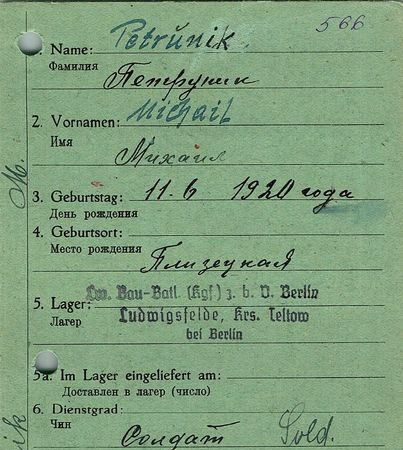 566
1. Name: Petrŭnik
Фамилия
Петруник
2. Vornamen: Michail
Имя
Михаил
3. Geburtstag: 11. 6 1920 года
День рождения
4. Geburtsort:
Место рождения
Плизецкая
5. Lager: Lw. Bau-Batl. (Kgf) z. b. V. Berlin
Лагер
Ludwigsfelde, Krs. Teltow
bei Berlin
5a. Im Lager eingeliefert am:
Доставлен в лагер (число)
6. Dienstgrad:
Чин
Солдат Sold.
M.